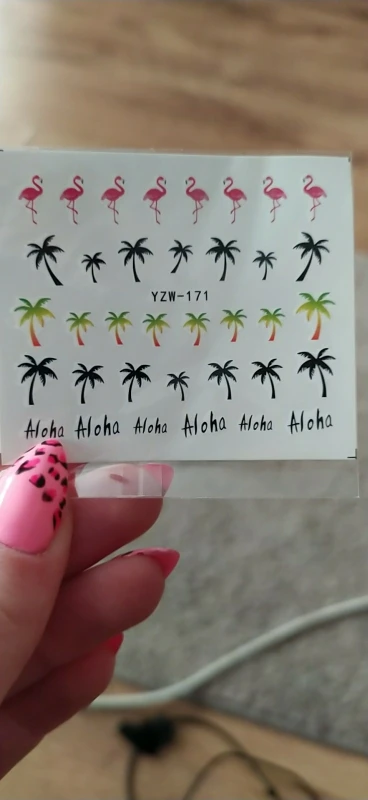 YZW-171
Aloha Aloha Aloha Aloha Aloha Aloha